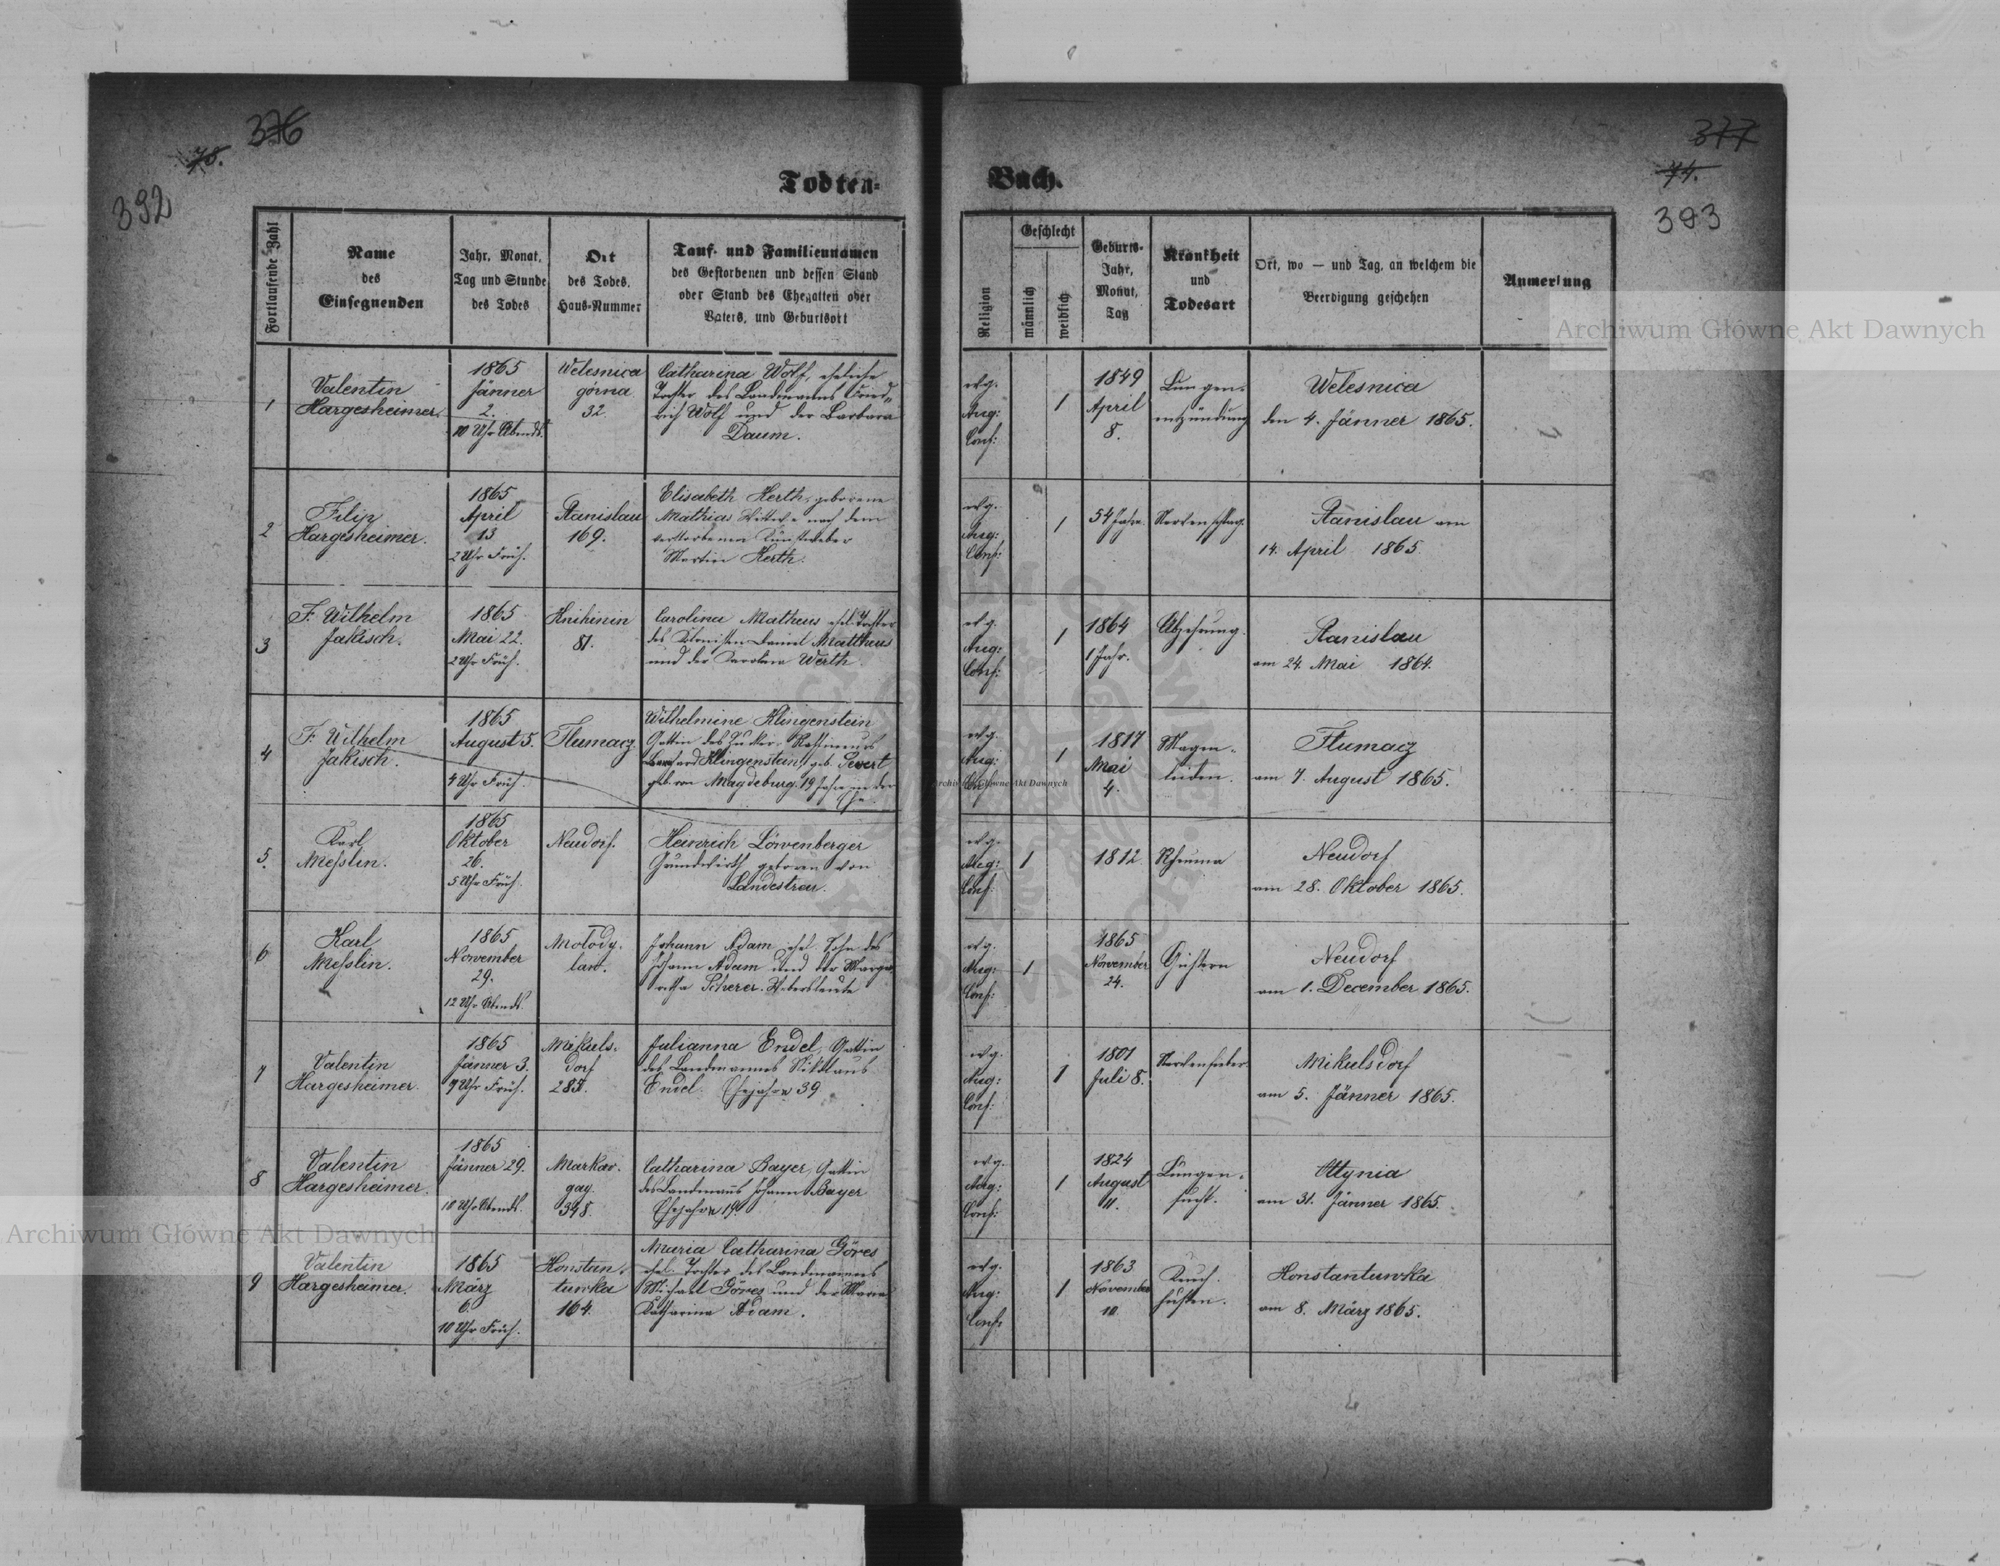 376
78.
392
Todten-
Fortlaufende Zahl
Name
des
Einsegnenden
Jahr, Monat,
Tag und Stunde
des Todes
Ort
des Todes,
Haus-Nummer
Tauf- und Familiennamen
des Gestorbenen und dessen Stand
oder Stand des Ehegatten oder
Vaters, und Geburtsort
1
Valentin
Hargesheimer.
1865
Jänner
2.
10 Uhr Abends.
Welesnica
górna
32.
Catharina Wolf, eheliche
Tochter des Landmanns Fried„
rich Wolf und der Barbara
Daum.
2
Filip
Hargesheimer.
1865
April
13
2 Uhr Früh.
Stanislau
169.
Elisabeth Herth, geborene
Mathias Witwe nach dem
verstorbenen Kunstweber
Martin Herth.
3
F. Wilhelm
Jakisch.
1865
Mai 22.
2 Uhr Früh.
Knihinin
81.
Carolina Matheus ehel. Tochter
des Kolonisten Daniel Matheus
und der Karolina Werth.
4
F. Wilhelm
Jakisch.
1865
August 5.
4 Uhr Früh.
Tlumacz
Wilhelmine Klingenstein
Gattin des Zucker-Raffineurs
Klingenstein, geb.
geb. von Magdeburg. 19 Jahre in der
Ehe.
5.
Karl
Messlin.
1865
Oktober
26.
5 Uhr Früh.
Neudorf.
Heinrich Löwenberger
Grundwirth geboren von
Landestreu.
6
Karl
Messlin.
1865
November
29.
12 Uhr Abends.
Molody.
law.
Johann Adam ehel. Sohn des
Johann Adam und der Marga„
retha Scherer. Webersleute
7
Valentin
Hargesheimer.
1865
Jänner 3.
9 Uhr Früh.
Mikuls.
dorf
Julianna Endel, Gattin
des Landmannes Niklaus
Endel. Ehejahre 39
8
Valentin
Hargesheimer.
1865
Jänner 29.
10 Uhr Abends.
Markow.
398.
Catharina Bayer, Gattin
des Landmanns Johann Bayer
Ehejahre 19.
9
Valentin
Hargesheimer.
1865
März
6.
10 Uhr Früh.
Konstan.
tuwka
164.
Maria Catharina Göres
ehel. Tochter des Landmannes
Michael Göres und der Maria
Katharina Adam.
377
74.
393
Buch.
Religion
Geschlecht
männlich
weiblich
Geburts-
Jahr,
Monat,
Tag
Krankheit
und
Todesart
Ort, wo — und Tag, an welchem die
Beerdigung geschehen
Anmerkung
evg.
Aug:
Conf:
1
1849
April
8.
Lungen-
entzündung
Welesnica
den 4. Jänner 1865.
evg.
Aug:
Conf:
1
54 Jahre.
Nervenschlag.
Stanislau am
14. April 1865.
evg.
Aug:
Conf:
1
1864
1 Jahr.
Abzehrung.
Stanislau
am 24. Mai 1864.
evg.
Aug:
Conf:
1
1817
Mai
4.
Magen-
leiden.
Tlumacz
am 7. August 1865.
evg.
Aug:
Conf:
1
1812
Rheuma
Neudorf
am 28. Oktober 1865.
evg.
Aug:
Conf:
1
1865
November
24.
Neudorf
am 1. December 1865.
evg.
Aug:
Conf:
1
1801
Juli 8.
Nervenfieber
Mikulsdorf
am 5. Jänner 1865.
evg.
Aug:
Conf:
1
1824
August
11.
Lungen-
sucht.
Ottynia
am 31. Jänner 1865.
evg.
Aug:
Conf:
1
1863
November
10.
Keuch.
husten.
Konstantuwka
am 8. März 1865.
Archiwum Główne Akt Dawnych
Archiwum Główne Akt Dawnych
Archiwum Główne Akt Dawnych